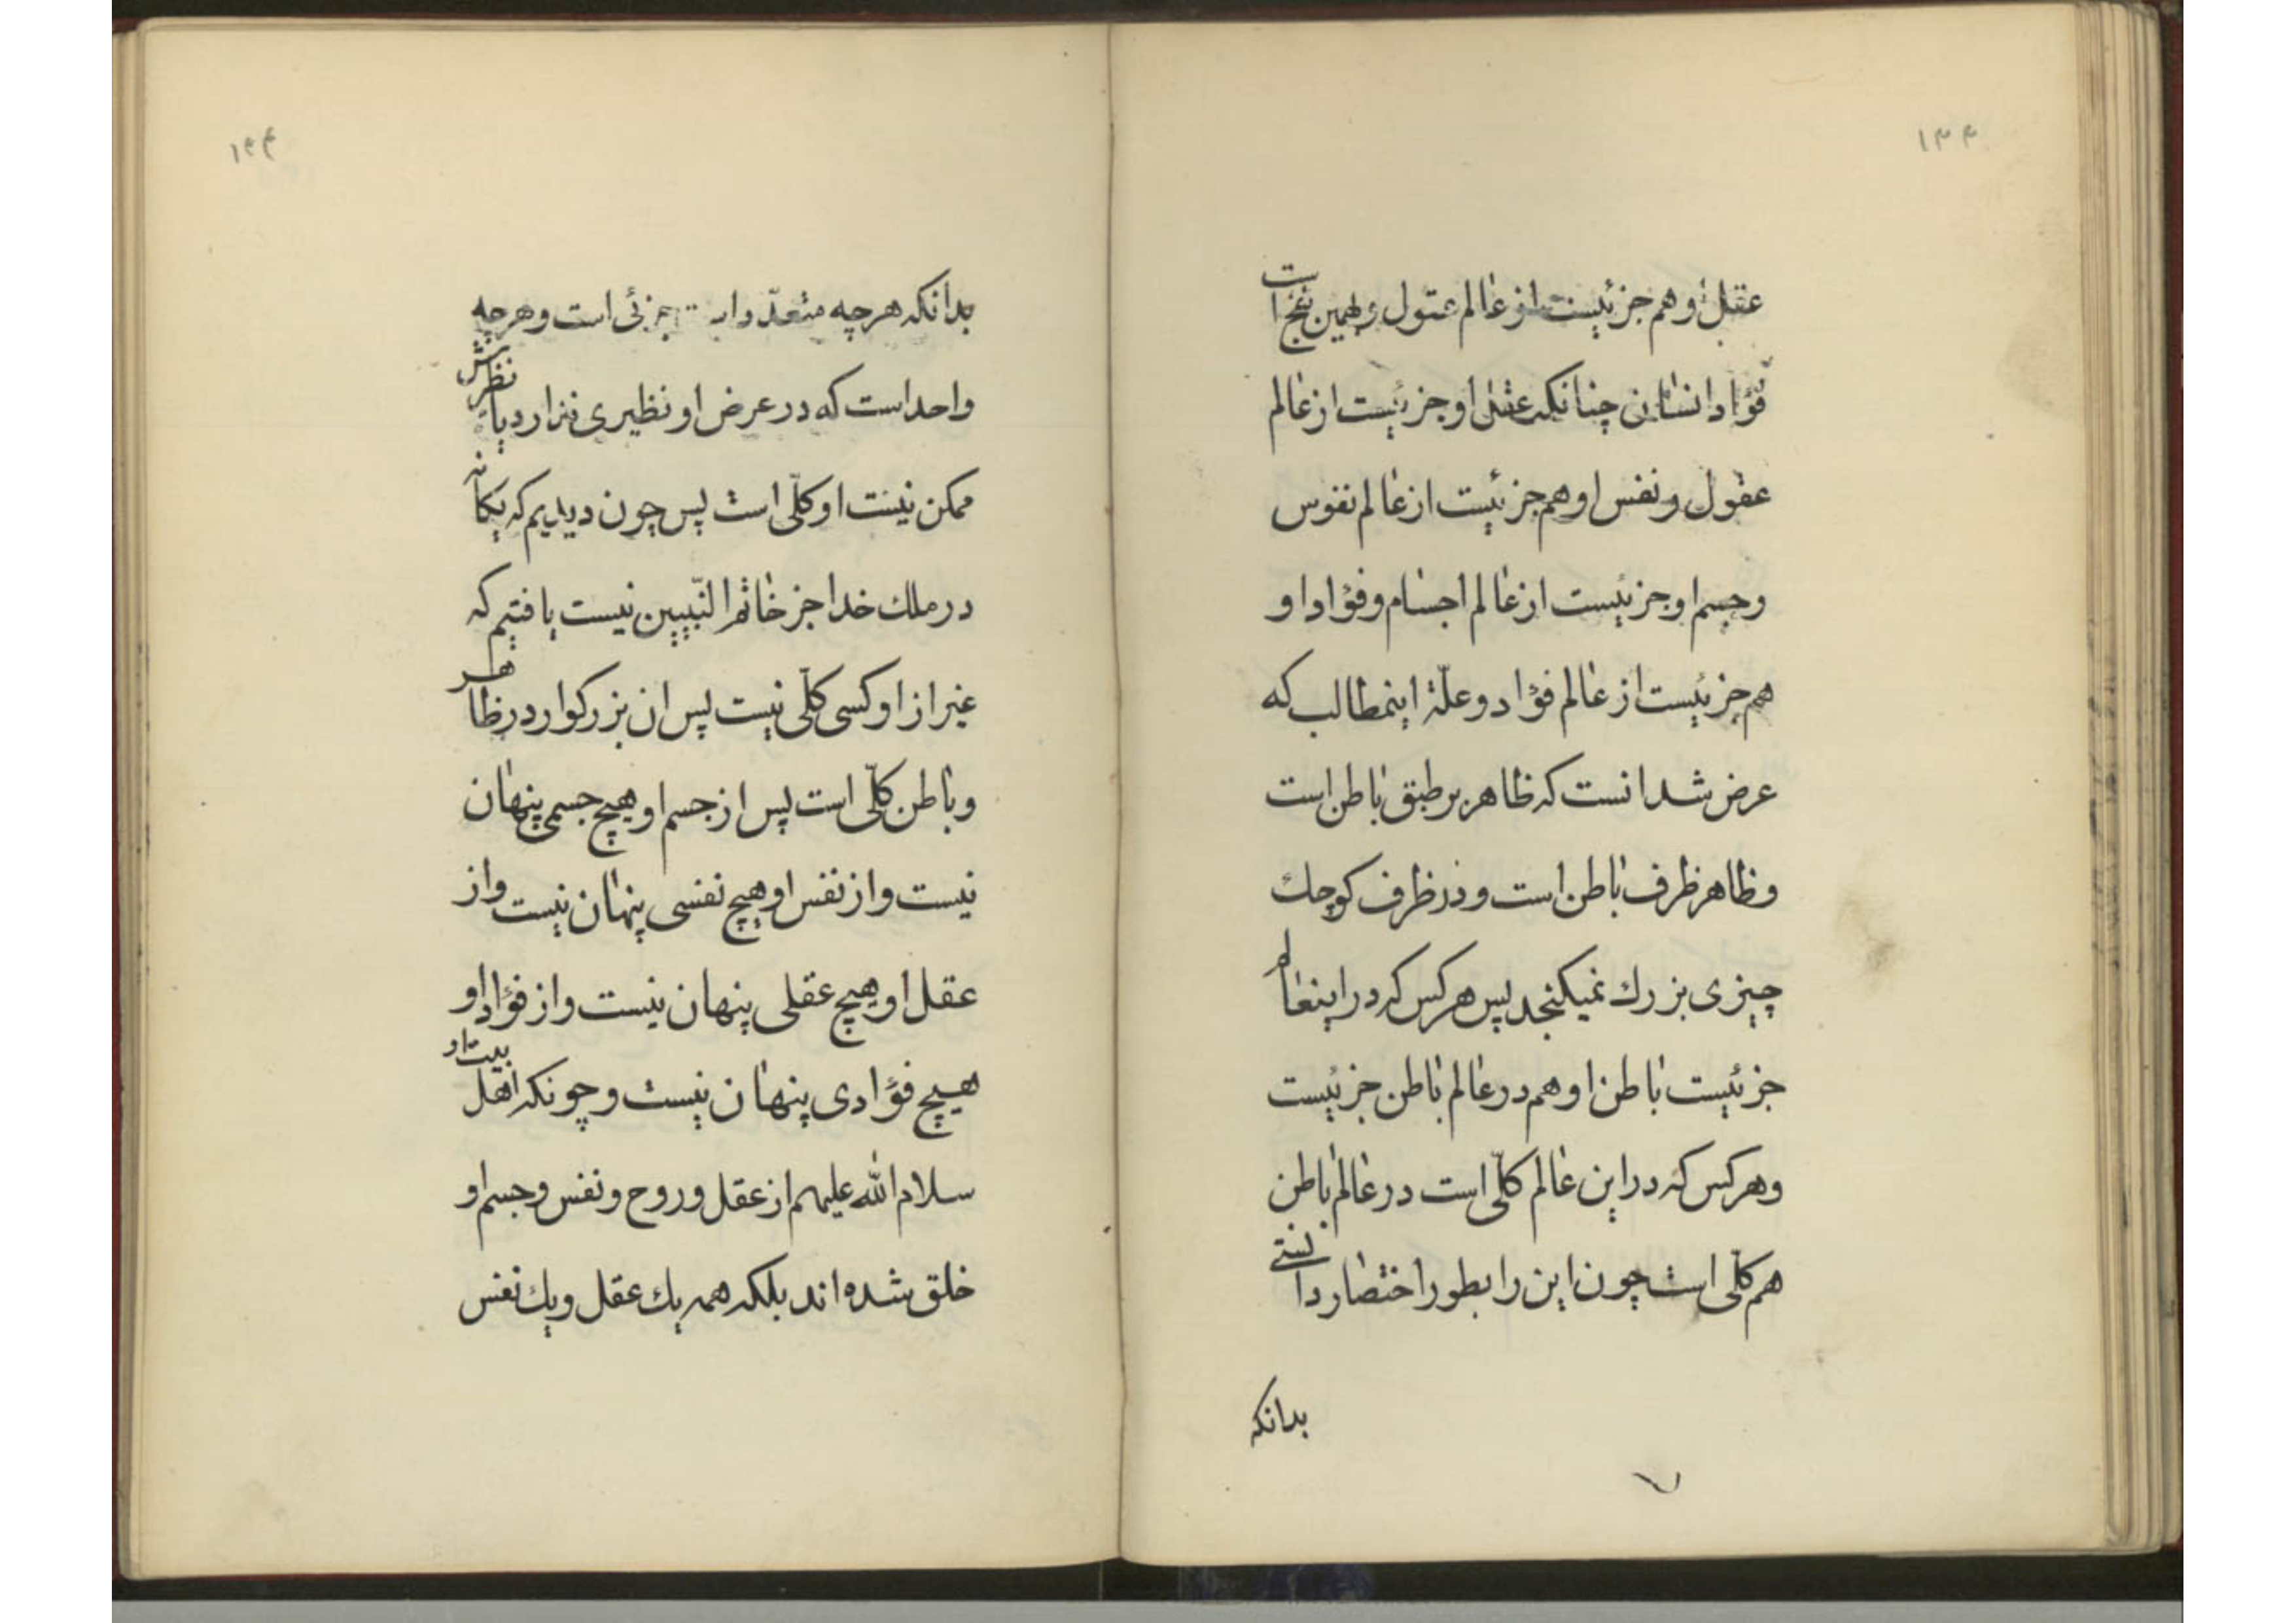 عقل او هم جزئیست از عالم عقول و بهمین نهج است
فؤاد انسان چنانکه عقل او جزئیست از عالم
عقول و نفس او هم جزئیست از عالم نفوس
و جسم او جزئیست از عالم اجسام و فؤاد او
هم جزئیست از عالم فؤاد و علّة اینمطالب که
عرض شد انست که ظاهر بر طبق باطن است
و ظاهر ظرف باطن است و در ظرف کوچک
چیزی بزرك نمیکنجد پس هر کس که در اینعالم
جزئیست باطن او هم در عالم باطن جزئیست
و هر کس که در این عالم کلّی است در عالم باطن
هم کلّی است چون این را بطور اختصار دانستی
بدانکه
بدانکه هر چه متعدّد است جزئی است و هر چه
واحد است که در عرض او نظیری ندارد یا نظیرش
ممکن نیست او کلّی است پس چون دیدیم که یکانه
در ملك خدا جز خاتم النّبیین نیست یافتیم که
غیر از او کسی کلّی نیست پس ان بزرکوار در ظاهر
و باطن کلّی است پس از جسم او هیچ جسمی پنهان
نیست و از نفس او هیچ نفسی پنهان نیست و از
عقل او هیچ عقلی پنهان نیست و از فؤاد او
هیچ فؤادی پنهان نیست و چونکه اهل بیت او
سلام الله علیهم از عقل و روح و نفس و جسم او
خلق شده اند بلکه همه یك عقل و یك نفس